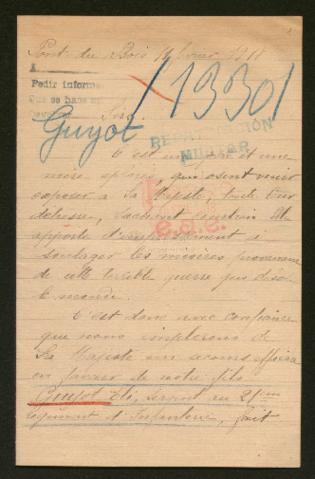 Pont du Bois 19 février 1918
Pedir informe
Que se hace
/1330/
Sire,
Guyot
REPARTICIÓN
MILITAR
C'est un père et une
mère éplorés, qui osent venir
exposer à Sa Majesté, toute leur
détresse, sachant combien Elle
apporte d'empressement à
soulager les misères provenant
de cette terrible guerre qui désole
le monde.
C'est donc avec confiance
que nous implorons de
Sa Majesté un secours
en faveur de notre fils
Guyot Elé, servant au 21eme
régiment d'Infanterie, fait